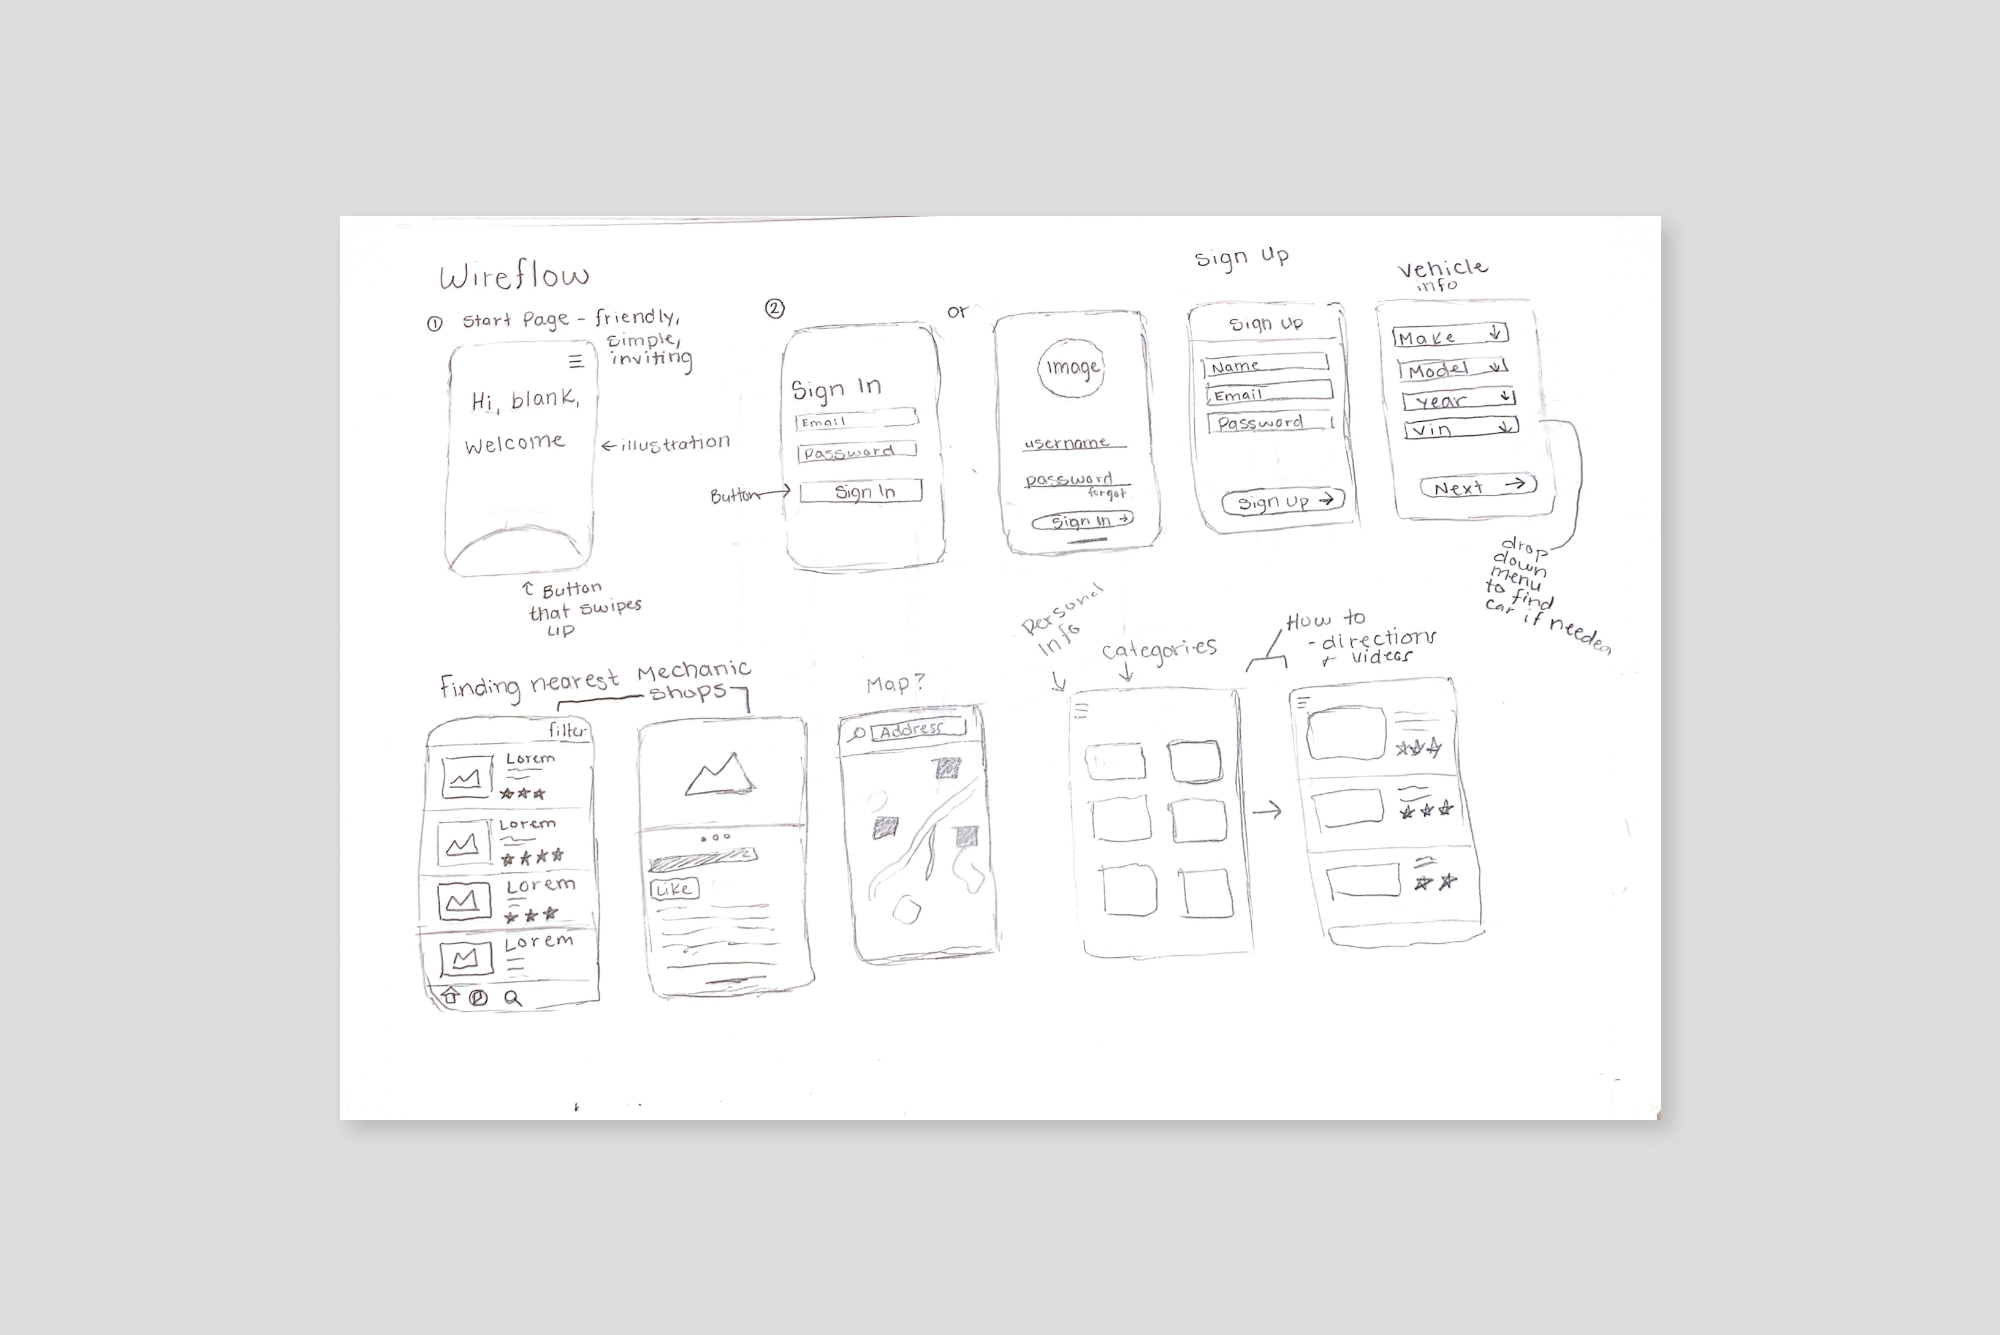 Wireflow
① Start Page - friendly,
simple,
inviting
Hi, blank,
welcome
← illustration
↑ Button
that swipes
up
②
Sign In
Email
Password
Button →
Sign In
or
image
username
password
forgot
Sign In →
Sign Up
Sign Up
Name
Email
Password
Sign Up →
Vehicle
info
Make ↓
Model ↓
Year ↓
Vin ↓
Next →
drop
down
menu
to find
car if needed
Finding nearest Mechanic
shops
filter
Lorem
Lorem
Lorem
Lorem
Like
Map?
Address
Personal
Info
Categories
How to
- directions
+ videos